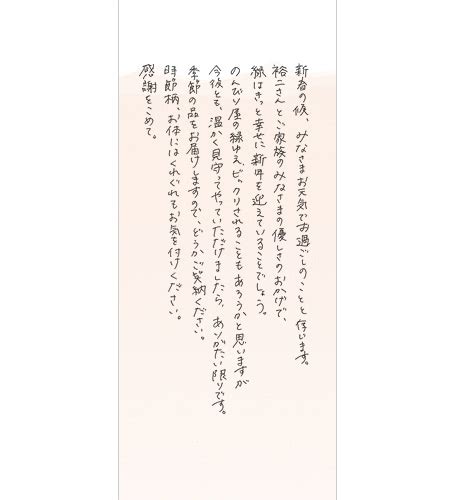 新春の候、みなさまお元気でお過ごしのことと存じます。
裕二さんとご家族のみなさまの優しさのおかげで、
緑はきっと幸せに新年を迎えていることでしょう。
のんびり屋の緑ゆえ、ビックリされることもあろうかと思いますが
今後とも、温かく見守ってやっていただけましたら、ありがたい限りです。
季節の品をお届けしますので、どうかご笑納ください。
時節柄、お体にはくれぐれもお気を付けください。
感謝をこめて。